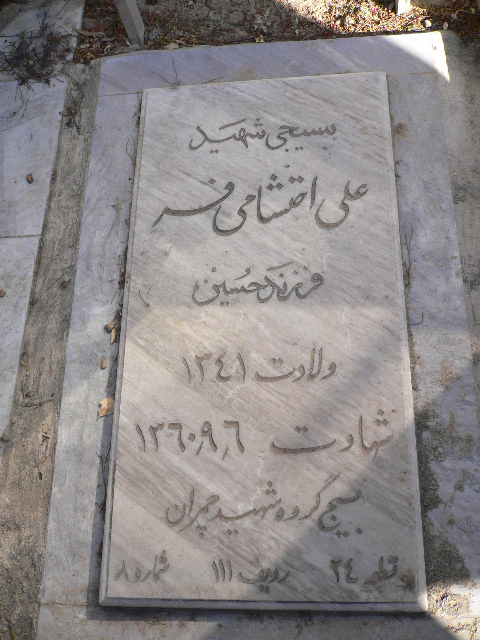 بسیجی شهید
علی احتشامی فر
فرزند حسین
ولادت ۱۳۴۱
شهادت ۱۳۶۰٫۹٫۶
بسیج گروه شهید چمران
قطعه ۲۴ ردیف ۱۱۱ شماره ۸